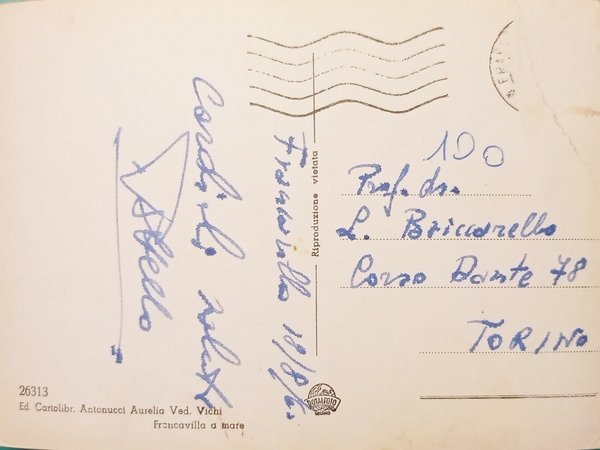 Francavilla 18/8/6.
Cordiali saluti
100
Prof. dr.
L. Briccarello
Corso Dante 78
TORINO
Riproduzione vietata
26313
Ed. Cartolibr. Antonucci Aurelia Ved. Vichi
Francavilla a mare
ROTALFOTO
MILANO